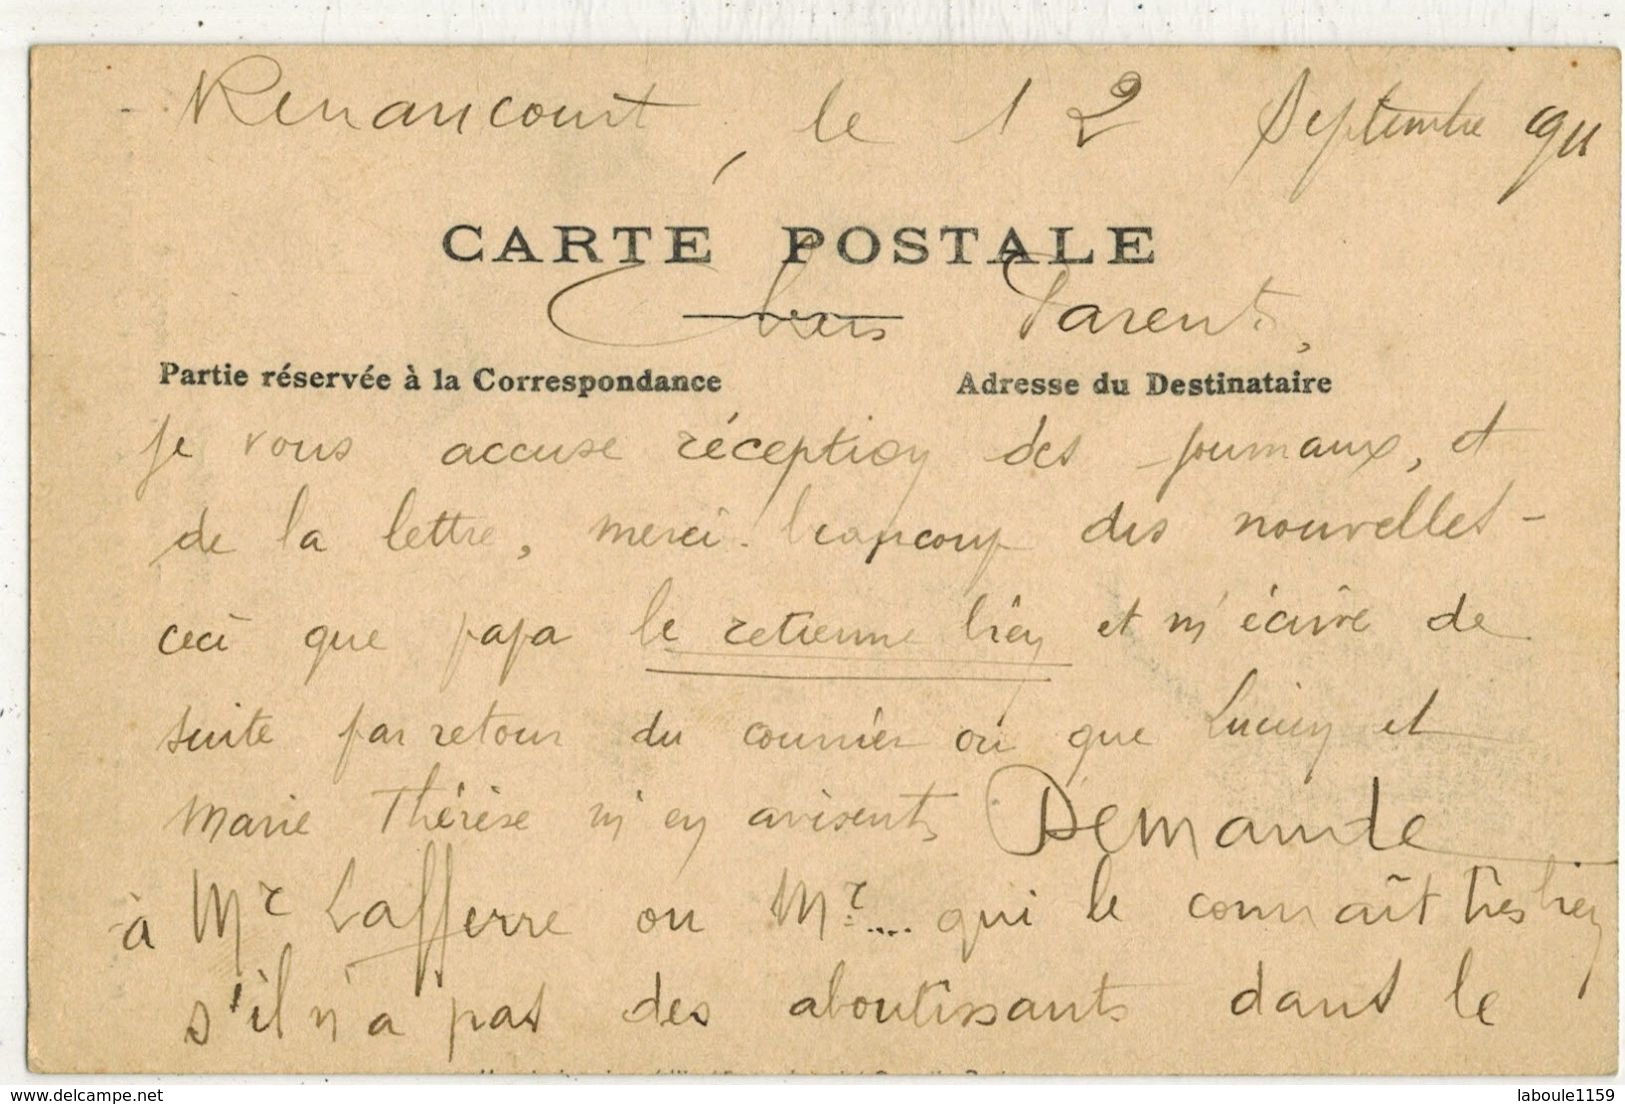 Renancourt, le 12 Septembre 1911
CARTE POSTALE
Chers Parents,
Partie réservée à la Correspondance
Adresse du Destinataire
je vous accuse réception des journaux, et
de la lettre, merci. beaucoup des nouvelles -
ceci que papa le retienne bien et m'écrive de
suite par retour du courrier ou que Lucien et
Marie Thérèse m'en avisent. Demande
à Mr Lafferre ou Mr.... qui le connaît très bien
s'il n'a pas des aboutissants dans le
delcampe.net
laboule1159